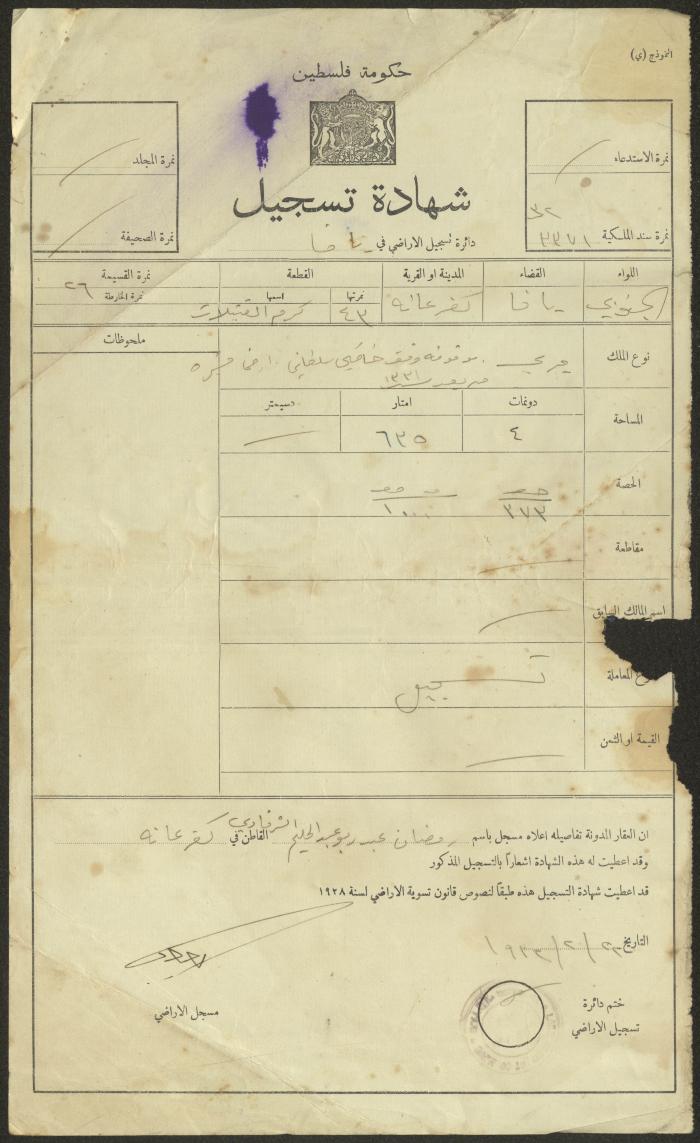 النموذج (ي)
حكومة فلسطين
نمرة الاستدعاء
نمرة المجلد
شهادة تسجيل
٣٢
نمرة سند الملكية ٣٣٧١
نمرة الصحيفة
دائرة تسجيل الاراضي في يافا
اللواء القضاء المدينة او القرية القطعة نمرة القسيمة
نمرتها اسمها نمرة الخارطة ٢٦
الجنوبي يافا كفرعانه ٤٣ كرم القتيلات
ملحوظات
نوع الملك ميري موقوفه وقف سلطاني
١٣٣١
دونمات امتار دسيمتر
المساحة ٤ ٦٣٥
الحصة
٣٧٣ ١٠٠٠
مقاطعة
اسم المالك السابق
المعاملة تسجيل
القيمة او الثمن
ان العقار المدونة تفاصيله اعلاه مسجل باسم رمضان عبد ربو عبد الحليم القاطن في كفرعانه
وقد اعطيت له هذه الشهادة اشعاراً بالتسجيل المذكور
قد اعطيت شهادة التسجيل هذه طبقاً لنصوص قانون تسوية الاراضي لسنة ١٩٢٨
التاريخ ٢٣/٢/١٩٣٣
ختم دائرة
تسجيل الاراضي
مسجل الاراضي